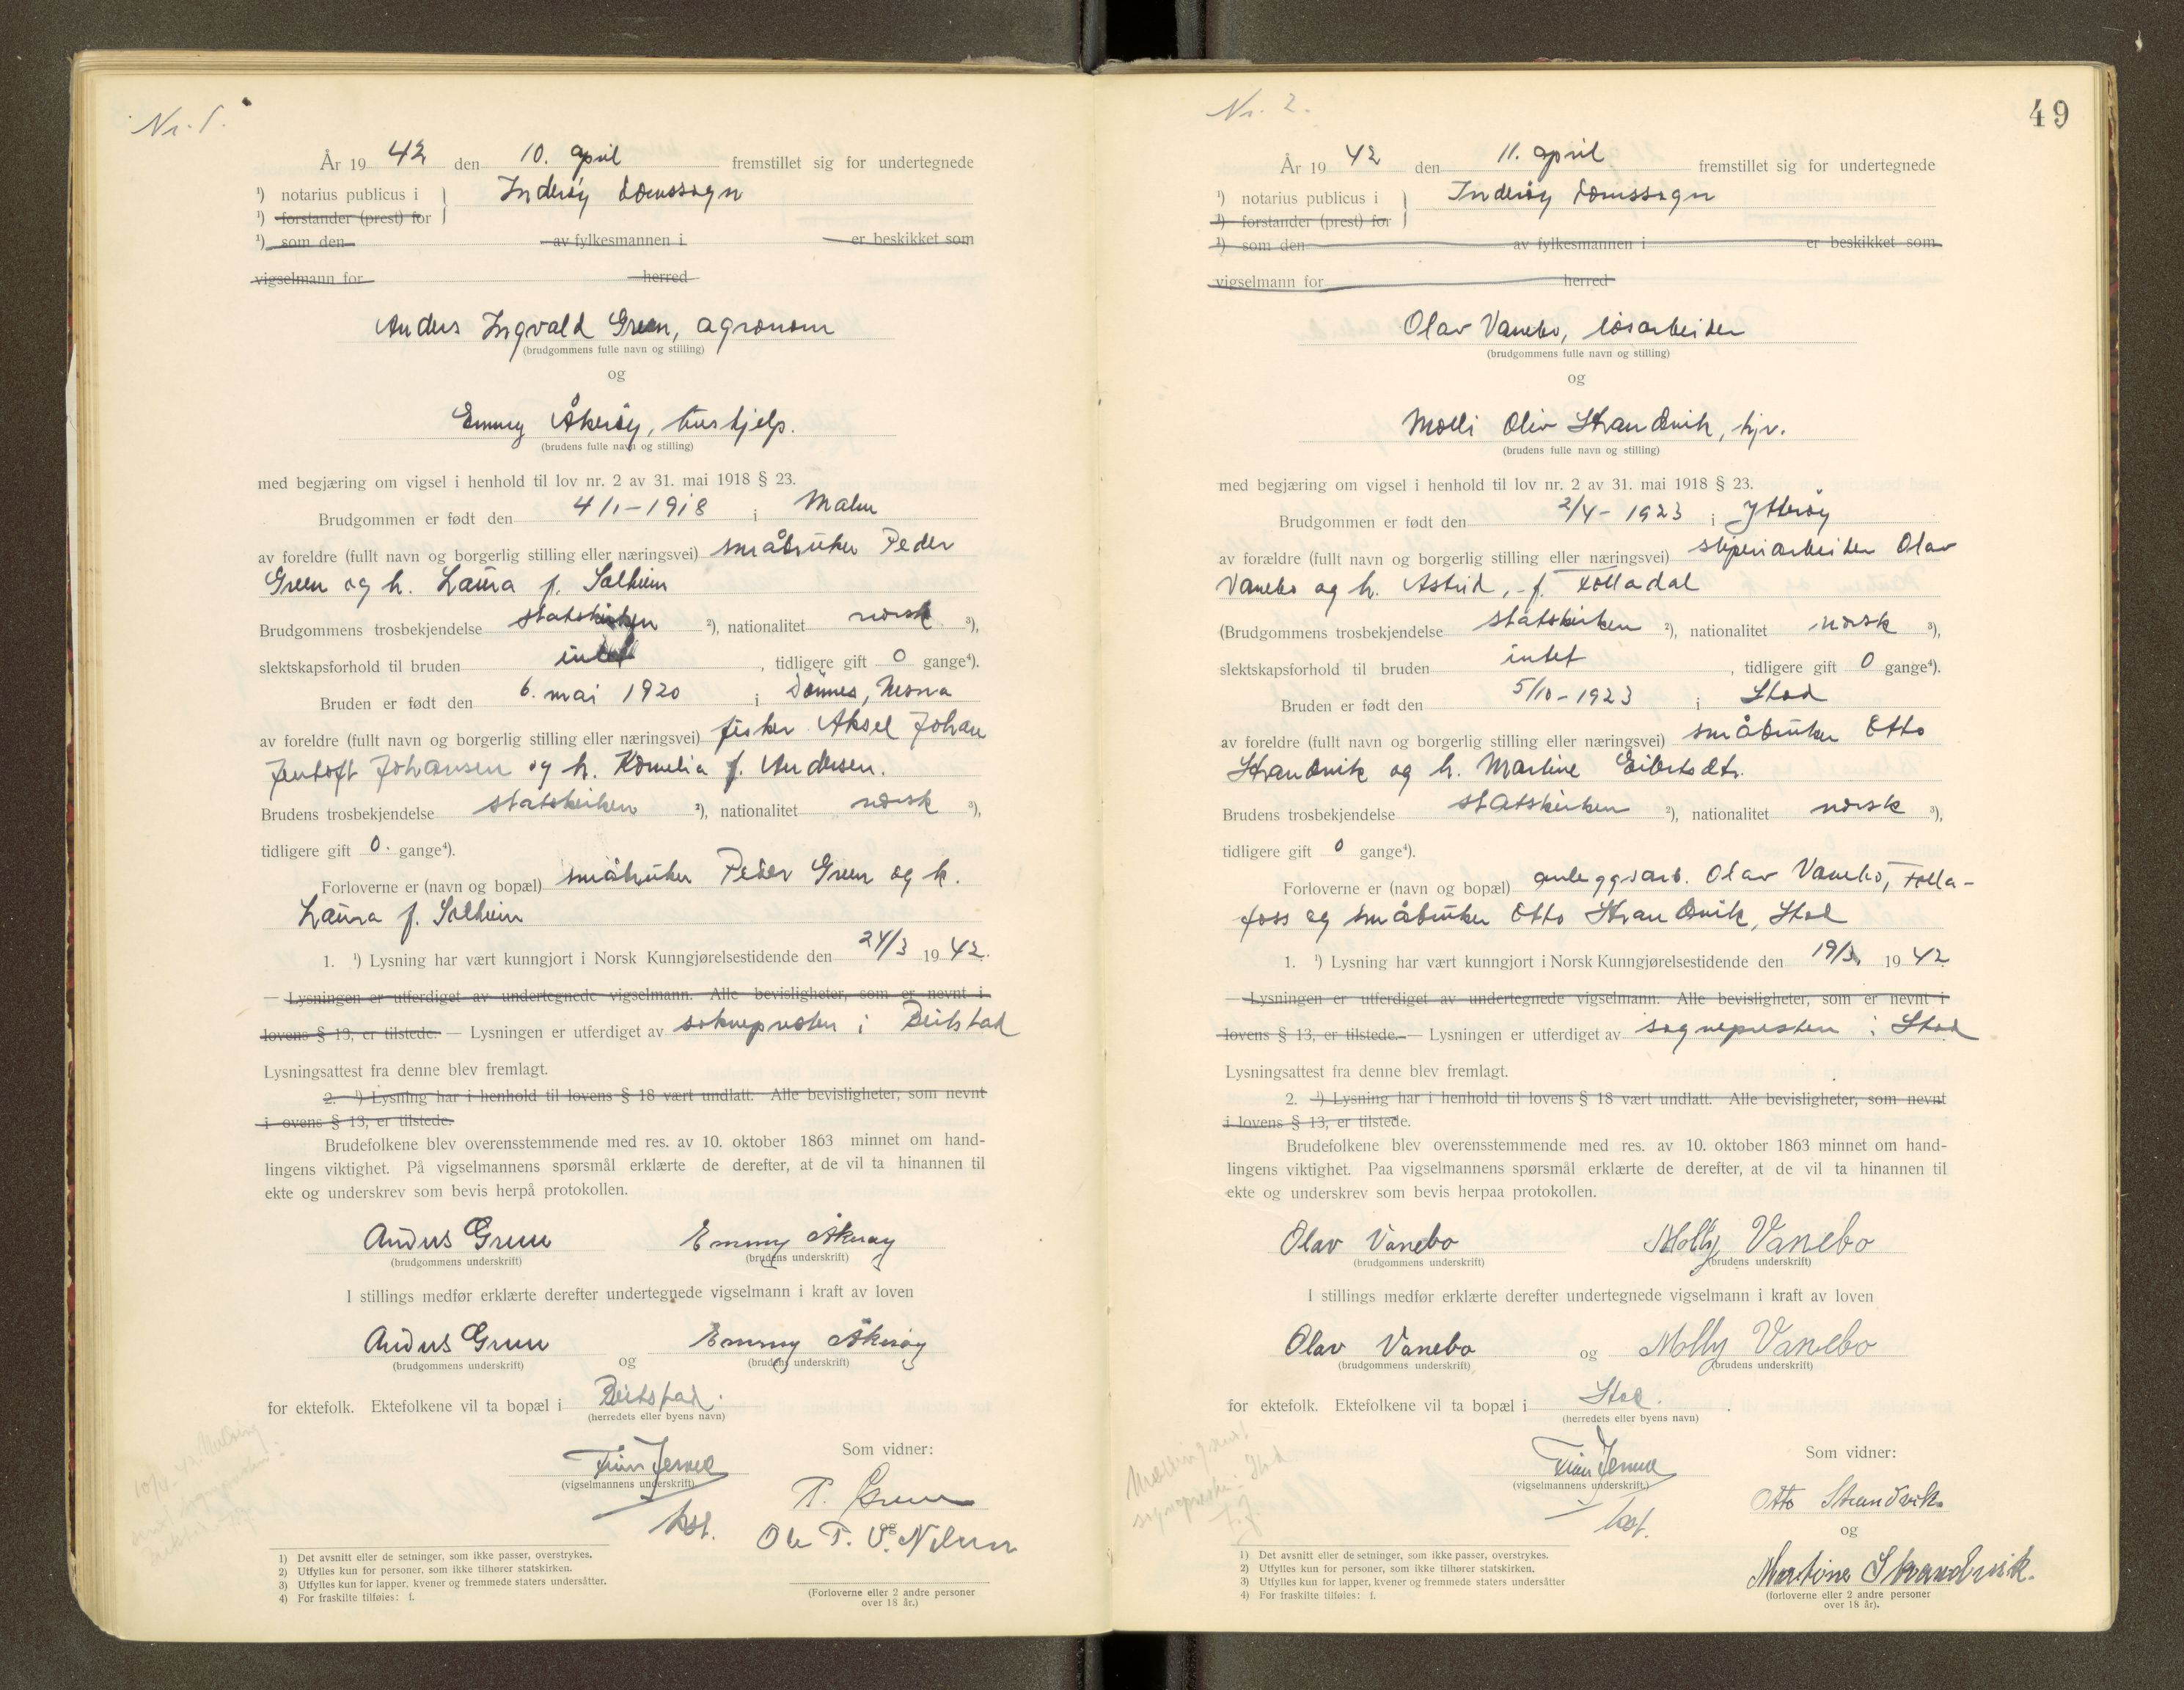 Nr. 1.
År 19 42 den 10. april fremstillet sig for undertegnede
¹) notarius publicus i } Inderøy domssogn
¹) forstander (prest) for
¹) som den av fylkesmannen i er beskikket som
vigselmann for herred
Anders Ingvald Green, agronom
(brudgommens fulle navn og stilling)
og
Emmy Åkerøy, hushjelp.
(brudens fulle navn og stilling)
med begjæring om vigsel i henhold til lov nr. 2 av 31. mai 1918 § 23.
Brudgommen er født den 4/1-1918 i Malm
av foreldre (fullt navn og borgerlig stilling eller næringsvei) småbruker Peder
Green og h. Laura f. Solheim
Brudgommens trosbekjendelse statskirken ²), nationalitet norsk ³),
slektskapsforhold til bruden intet, tidligere gift 0 gange⁴).
Bruden er født den 6. mai 1920 i Dønnes, Nesna
av foreldre (fullt navn og borgerlig stilling eller næringsvei) fisker Aksel Johan
Jentoft Johansen og h. Kornelia f. Andersen.
Brudens trosbekjendelse statskirken ²), nationalitet norsk ³),
tidligere gift 0. gange⁴).
Forloverne er (navn og bopæl) småbruker Peder Green og h.
Laura f. Solheim
1. ¹) Lysning har vært kunngjort i Norsk Kunngjørelsestidende den 24/3 19 42.
— Lysningen er utferdiget av undertegnede vigselmann. Alle bevisligheter, som er nevnt i
lovens § 13, er tilstede. — Lysningen er utferdiget av soknepresten i Beitstad
Lysningsattest fra denne blev fremlagt.
2. ¹) Lysning har i henhold til lovens § 18 vært undlatt. Alle bevisligheter, som nevnt
i ovens § 13, er tilstede.
Brudefolkene blev overensstemmende med res. av 10. oktober 1863 minnet om hand-
lingens viktighet. På vigselmannens spørsmål erklærte de derefter, at de vil ta hinannen til
ekte og underskrev som bevis herpå protokollen.
Anders Green Emmy Åkerøy
(brudgommens underskrift) (brudens underskrift)
I stillings medfør erklærte derefter undertegnede vigselmann i kraft av loven
Anders Green og Emmy Åkerøy
(brudgommens underskrift) (brudens underskrift)
for ektefolk. Ektefolkene vil ta bopæl i Beitstad.
(herredets eller byens navn)
Finn Jenne
(vigselmannens underskrift)
kst.
Som vidner:
P. Green
og
Ole P. V. Nelson
(Forloverne eller 2 andre personer
over 18 år.)
10/4-42 Melding
sendt
1) Det avsnitt eller de setninger, som ikke passer, overstrykes.
2) Utfylles kun for personer, som ikke tilhører statskirken.
3) Utfylles kun for lapper, kvener og fremmede staters undersåtter.
4) For fraskilte tilføies: f.
Nr. 2.
49
År 19 42 den 11. april fremstillet sig for undertegnede
¹) notarius publicus i } Inderøy domssogn
¹) forstander (prest) for
¹) som den av fylkesmannen i er beskikket som
vigselmann for herred
Olav Vanebo, løsarbeider
(brudgommens fulle navn og stilling)
og
Molli Oliv Strandvik, hjv.
(brudens fulle navn og stilling)
med begjæring om vigsel i henhold til lov nr. 2 av 31. mai 1918 § 23.
Brudgommen er født den 2/4-1923 i Ytterøy
av forældre (fullt navn og borgerlig stilling eller næringsvei) sliperiarbeider Olav
Vanebo og h. Astrid, f. Folladal
(Brudgommens trosbekjendelse statskirken ²), nationalitet norsk ³),
slektskapsforhold til bruden intet, tidligere gift 0 gange⁴).
Bruden er født den 5/10-1923 i Stod
av foreldre (fullt navn og borgerlig stilling eller næringsvei) småbruker Otto
Strandvik og h. Martine Eilertsdtr.
Brudens trosbekjendelse statskirken ²), nationalitet norsk ³),
tidligere gift 0 gange⁴).
Forloverne er (navn og bopæl) anleggsarb. Olav Vanebo, Folla-
foss og småbruker Otto Strandvik, Stod
1. ¹) Lysning har vært kunngjort i Norsk Kunngjørelsestidende den 19/3. 19 42
— Lysningen er utferdiget av undertegnede vigselmann. Alle bevisligheter, som er nevnt i
lovens § 13, er tilstede. — Lysningen er utferdiget av sognepresten i Stod
Lysningsattest fra denne blev fremlagt.
2. ¹) Lysning har i henhold til lovens § 18 vært undlatt. Alle bevisligheter, som nevnt
i lovens § 13, er tilstede.
Brudefolkene blev overensstemmende med res. av 10. oktober 1863 minnet om hand-
lingens viktighet. Paa vigselmannens spørsmål erklærte de derefter, at de vil ta hinannen til
ekte og underskrev som bevis herpaa protokollen.
Olav Vanebo Molly Vanebo
(brudgommens underskrift) (brudens underskrift)
I stillings medfør erklærte derefter undertegnede vigselmann i kraft av loven
Olav Vanebo og Molly Vanebo
(brudgommens underskrift) (brudens underskrift)
for ektefolk. Ektefolkene vil ta bopæl i Stod.
(herredets eller byens navn)
Finn Jenne
(vigselmannens underskrift)
kst.
Som vidner:
Otto Strandvik
og
Martine Strandvik.
(forloverne eller 2 andre personer
over 18 år).
Melding sendt
sognepresten i Stod
F.J.
1) Det avsnitt eller de setninger, som ikke passer, overstrykes.
2) Utfylles kun for personer, som ikke tilhører statskirken.
3) Utfylles kun for lapper, kvener og fremmede staters undersåtter
4) For fraskilte tilføies: f.